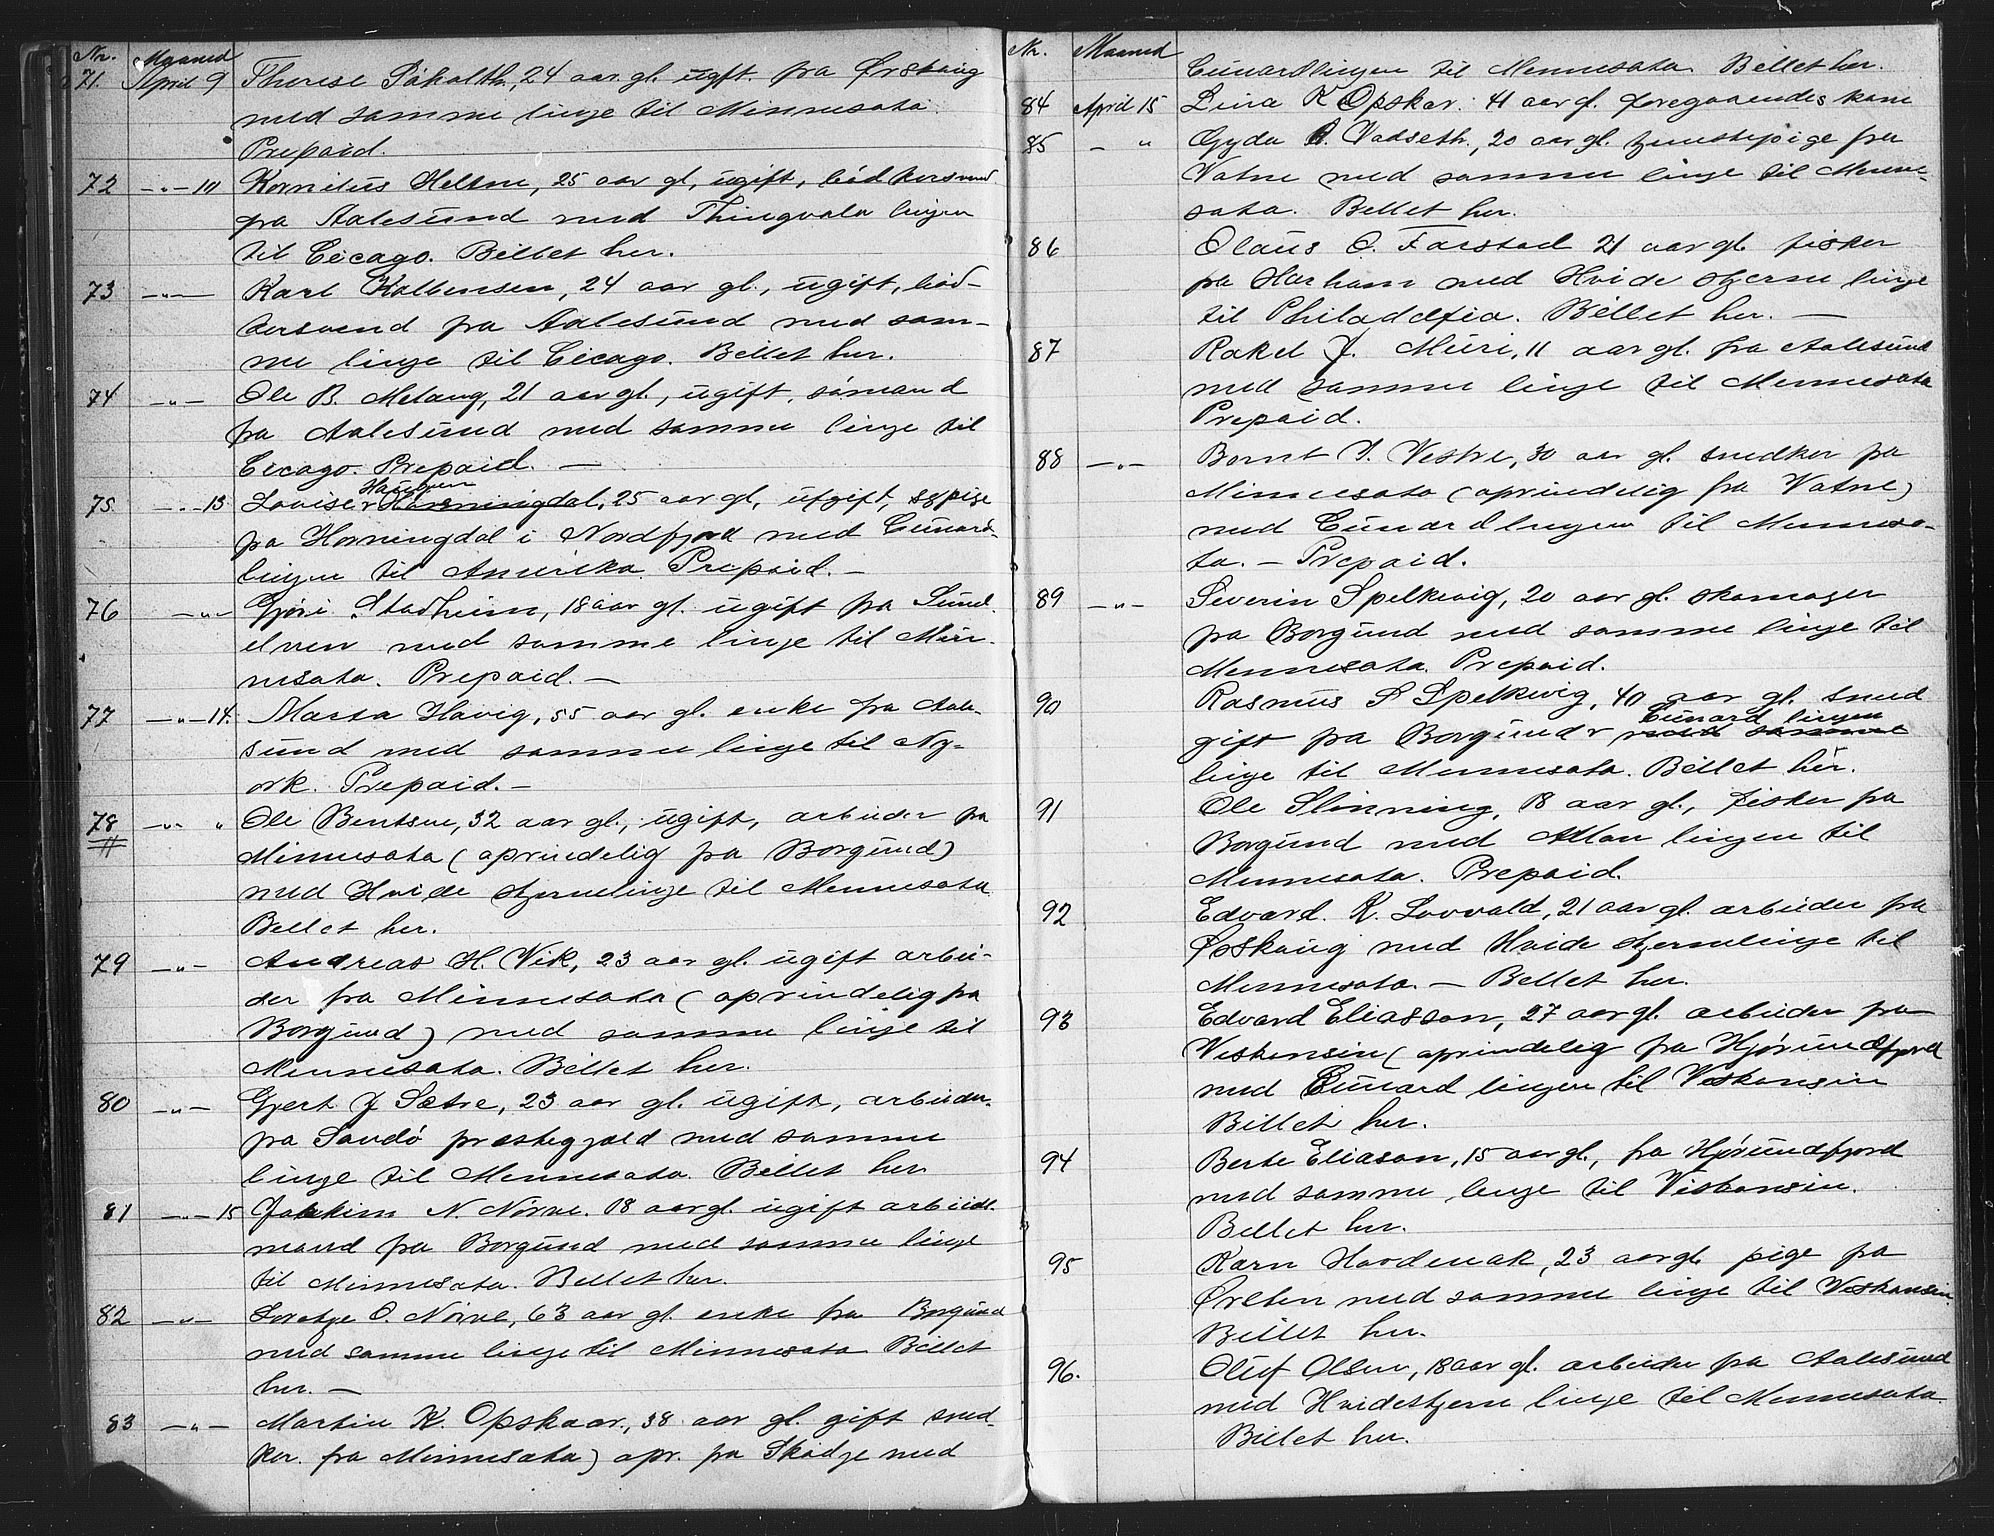 Nr. Maaned
71. April 9 Therese Solholth, 24 aar gl. ugift fra Ørskoug
med samme linje til Minnesota.
Prepaid.
72 —"— 10 Kornilius Heltne, 25 aar gl, ugift, bødkersvend
fra Aalesund med Thingvala linjen
til Cicago. Billet her.
73 —"— Karl Kolbensen, 24 aar gl., ugift, bød-
kersvend fra Aalesund med sam-
me linje til Cicago. Billet her.
74 —"— Ole B. Melang, 21 aar gl., ugift, sømand
fra Aalesund med samme linje til
Cicago. Prepaid. —
Haugen
75 —"— 13 Lovise Horningdal, 25 aar gl, ugift, sypige
fra Horningdal i Nordfjord med Cunard-
linjen til Amerika. Prepaid. —
76 —"— Gjøri Stadheim, 18 aar gl. ugift fra Sunel-
elven med samme linje til Min-
nesota. Prepaid. —
77 —"— 14. Marta Havig, 55 aar gl. enke fra Aale-
sund med samme linje til Ny-
ork. Prepaid. —
78 —"— " Ole Bentsen, 32 aar gl., ugift, arbeider fra
Minnesota (oprindelig fra Borgund)
med Hvide stjernelinje til Minnesota
Billet her.
79 —"— Andreas H. Vik, 23 aar gl. ugift arbei-
der fra Minnesota (oprindelig fra
Borgund) med samme linje til
Minnesota. Billet her.
80 —"— Gjert J Sætre, 23 aar gl. ugift, arbeider
fra Sandø prestegjæld med samme
linje til Minnesota. Billet her
81 —"— 15 Joakim N. Nørve. 18 aar gl. ugift arbeids-
mand fra Borgund med samme linje
til Minnesota. Billet her.
82 —"— Loratze O. Nørve, 63 aar gl. enke fra Borgund
med samme linje til Minnesota Billet
her. —
83 —"— Martin K. Opskaar, 38 aar gl. gift sned-
ker fra Minnesota) opr. fra Skodje med
Nr. Maaned
Cunardlinjen til Minnesota. Billet her.
84 April 15 Lina K Opskar. 41 aar gl. foregaaendes kone
85 — " Gyda A. Vadseth, 20 aar gl. tjenestepige fra
Vatne med samme linje til Minne-
sota. Billet her.
86 Olaus O. Farstad 21 aar gl. fisker
fra Harham med Hvide stjerne linje
til Philaddfia. Billet her. —
87 Rakel J. Muri, 11 aar gl. fra Aalesund
med samme linje til Minnesota
Prepaid.
88 —"— Bernt I. Vestre, 30 aar gl. snedker fra
Minnesota (oprindelig fra Vatne)
med Cunardlinjen til Minneso-
ta. — Prepaid.
89 —"— Severin Spelkvig, 20 aar gl. skomager
fra Borgund med samme linje til
Minnesota. Prepaid.
90 Rasmus S Spelkvig, 40 aar gl. smed
Cunard linjen
gift fra Borgund med samme
linje til Minnesota. Billet her.
91 Ole Slinning, 18 aar gl., fisker fra
Borgund med Allan linjen til
Minnesota. Prepaid.
92 Edvard. K. Lovvald, 21 aar gl. arbeider fra
Ørskoug med Hvide stjernelinje til
Minnesota. — Billet her.
93 Edvard Eliasson, 27 aar gl. arbeider fra
Viskonsin (oprindelig fra Hjørundfjord
med Cunard linjen til Viskonsin
Billet her.
94 Berte Eliason, 15 aar gl., fra Hjørundfjord
med samme linje til Viskonsin.
Billet her.
95 Karn Hovdenak, 23 aar gl. pige fra
Ørsten med samme linje til Viskonsin.
Billet her.
96. Oluf Olsen, 18 aar gl. arbeider fra Aalesund
med Hvidestjerne linje til Minnesota
Billet her.